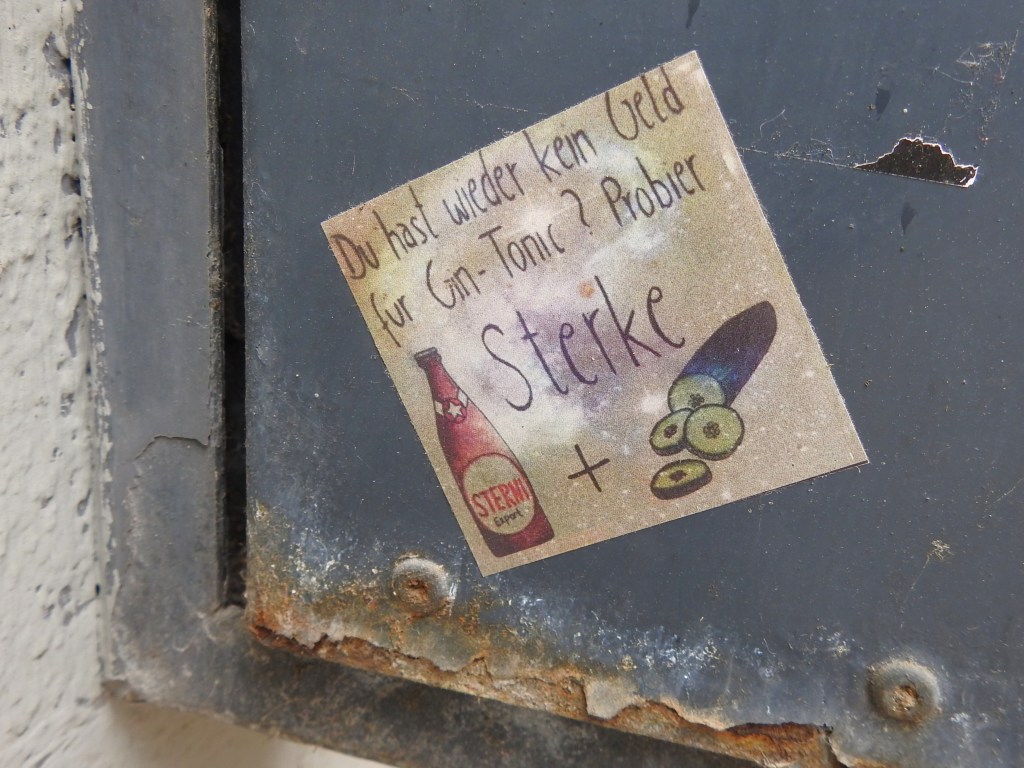 Du hast wieder kein Geld
für Gin-Tonic? Probier
Sterke
+
STERNI
Export